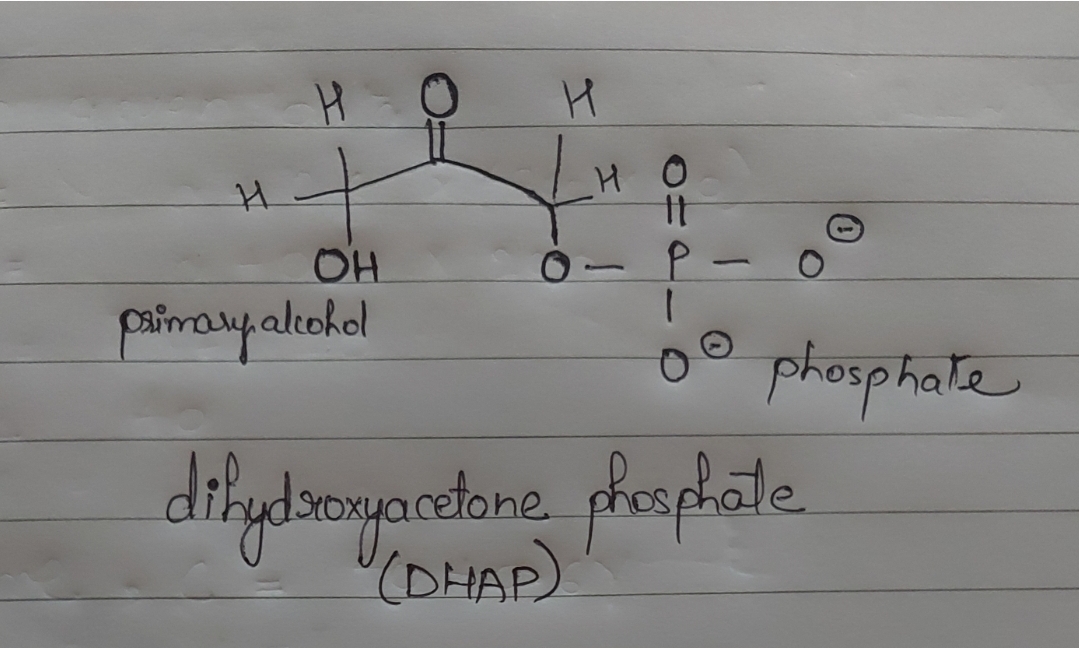 H O H
H H O
OH O – P – O ⊖
primary alcohol
O ⊖ phosphate
dihydroxyacetone phosphate
(DHAP)